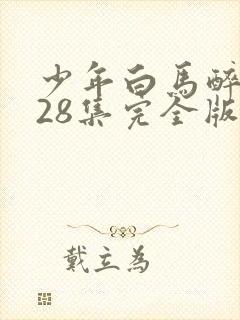 少年白馬醉
28集完全版
戴立為